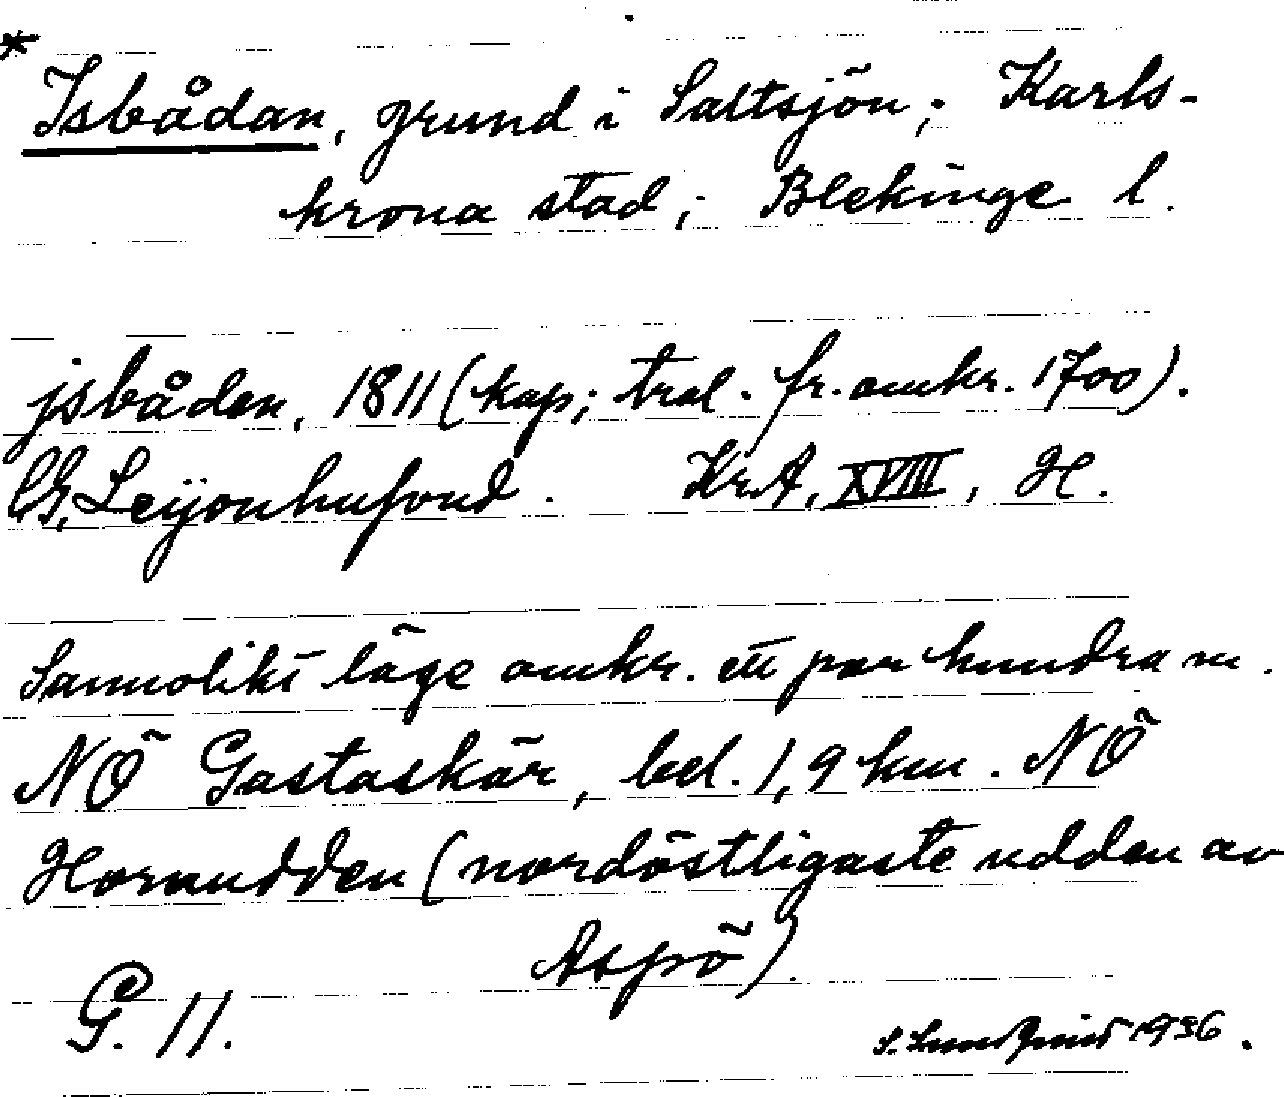 * Isbådan, grund i Saltsjön; Karls-
krona stad; Blekinge l.
jsbåden, 1811 (kap; tral. fr. omkr. 1700).
CG. Leijonhufvud. KrA, XVIII, H.
Sannolikt läge omkr. ett par hundra m.
NÖ Gastaskär, bel. 1,9 km. NÖ
Hornudden (nordöstligaste udden av
Aspö).
G. 11.
S. Lundquist 1936.